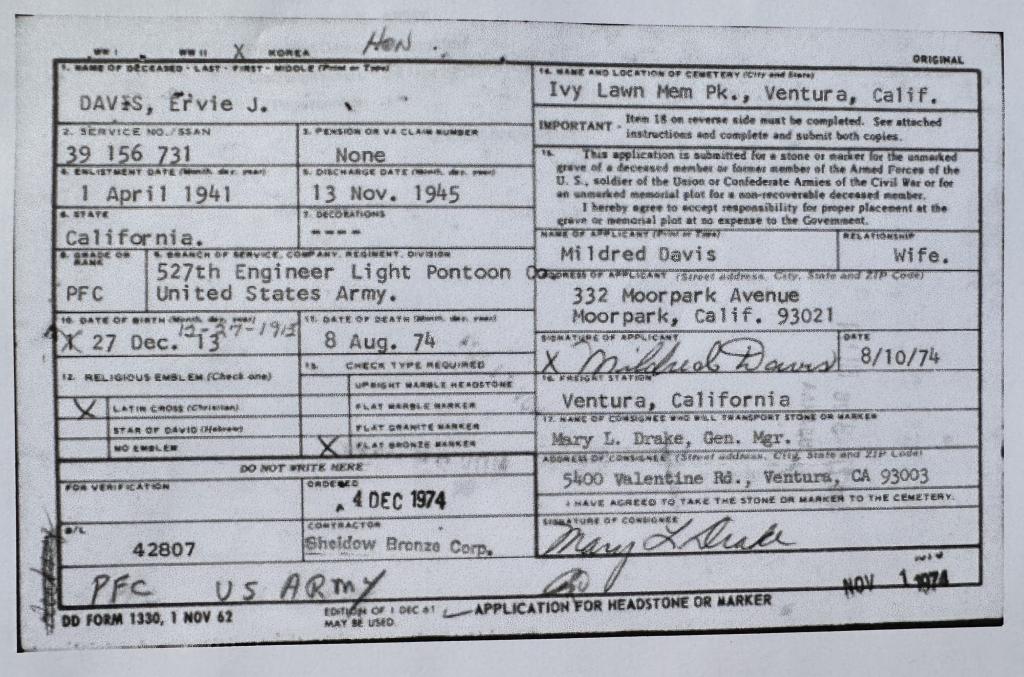 WW I WW II X KOREA HON.
ORIGINAL
1. NAME OF DECEASED - LAST - FIRST - MIDDLE (Print or Type)
DAVIS, Ervie J.
2. SERVICE NO./SSAN
39 156 731
3. PENSION OR VA CLAIM NUMBER
None
4. ENLISTMENT DATE (Month, day, year)
1 April 1941
5. DISCHARGE DATE (Month, day, year)
13 Nov. 1945
6. STATE
California.
7. DECORATIONS
----
8. GRADE OR RANK
PFC
9. BRANCH OF SERVICE, COMPANY, REGIMENT, DIVISION
527th Engineer Light Pontoon Co.
United States Army.
10. DATE OF BIRTH (Month, day, year)
12-27-1913
X 27 Dec. 13
11. DATE OF DEATH (Month, day, year)
8 Aug. 74
12. RELIGIOUS EMBLEM (Check one)
X LATIN CROSS (Christian)
STAR OF DAVID (Hebrew)
NO EMBLEM
13. CHECK TYPE REQUIRED
UPRIGHT MARBLE HEADSTONE
FLAT MARBLE MARKER
FLAT GRANITE MARKER
X FLAT BRONZE MARKER
DO NOT WRITE HERE
FOR VERIFICATION
ORDERED
4 DEC 1974
B/L
42807
CONTRACTOR
Sheidow Bronze Corp.
14. NAME AND LOCATION OF CEMETERY (City and State)
Ivy Lawn Mem Pk., Ventura, Calif.
IMPORTANT - Item 18 on reverse side must be completed. See attached
instructions and complete and submit both copies.
15. This application is submitted for a stone or marker for the unmarked
grave of a deceased member or former member of the Armed Forces of the
U. S., soldier of the Union or Confederate Armies of the Civil War or for
an unmarked memorial plot for a non-recoverable deceased member.
I hereby agree to accept responsibility for proper placement at the
grave or memorial plot at no expense to the Government.
NAME OF APPLICANT (Print or Type)
Mildred Davis
RELATIONSHIP
Wife.
ADDRESS OF APPLICANT (Street address, City, State and ZIP Code)
332 Moorpark Avenue
Moorpark, Calif. 93021
SIGNATURE OF APPLICANT
X Mildred Davis
DATE
8/10/74
16. FREIGHT STATION
Ventura, California
17. NAME OF CONSIGNEE WHO WILL TRANSPORT STONE OR MARKER
Mary L. Drake, Gen. Mgr.
ADDRESS OF CONSIGNEE (Street address, City, State and ZIP Code)
5400 Valentine Rd., Ventura, CA 93003
I HAVE AGREED TO TAKE THE STONE OR MARKER TO THE CEMETERY.
SIGNATURE OF CONSIGNEE
Mary L Drake
PFC US ARMY
NOV 1 1974
DD FORM 1330, 1 NOV 62
EDITION OF 1 DEC 61
MAY BE USED.
APPLICATION FOR HEADSTONE OR MARKER